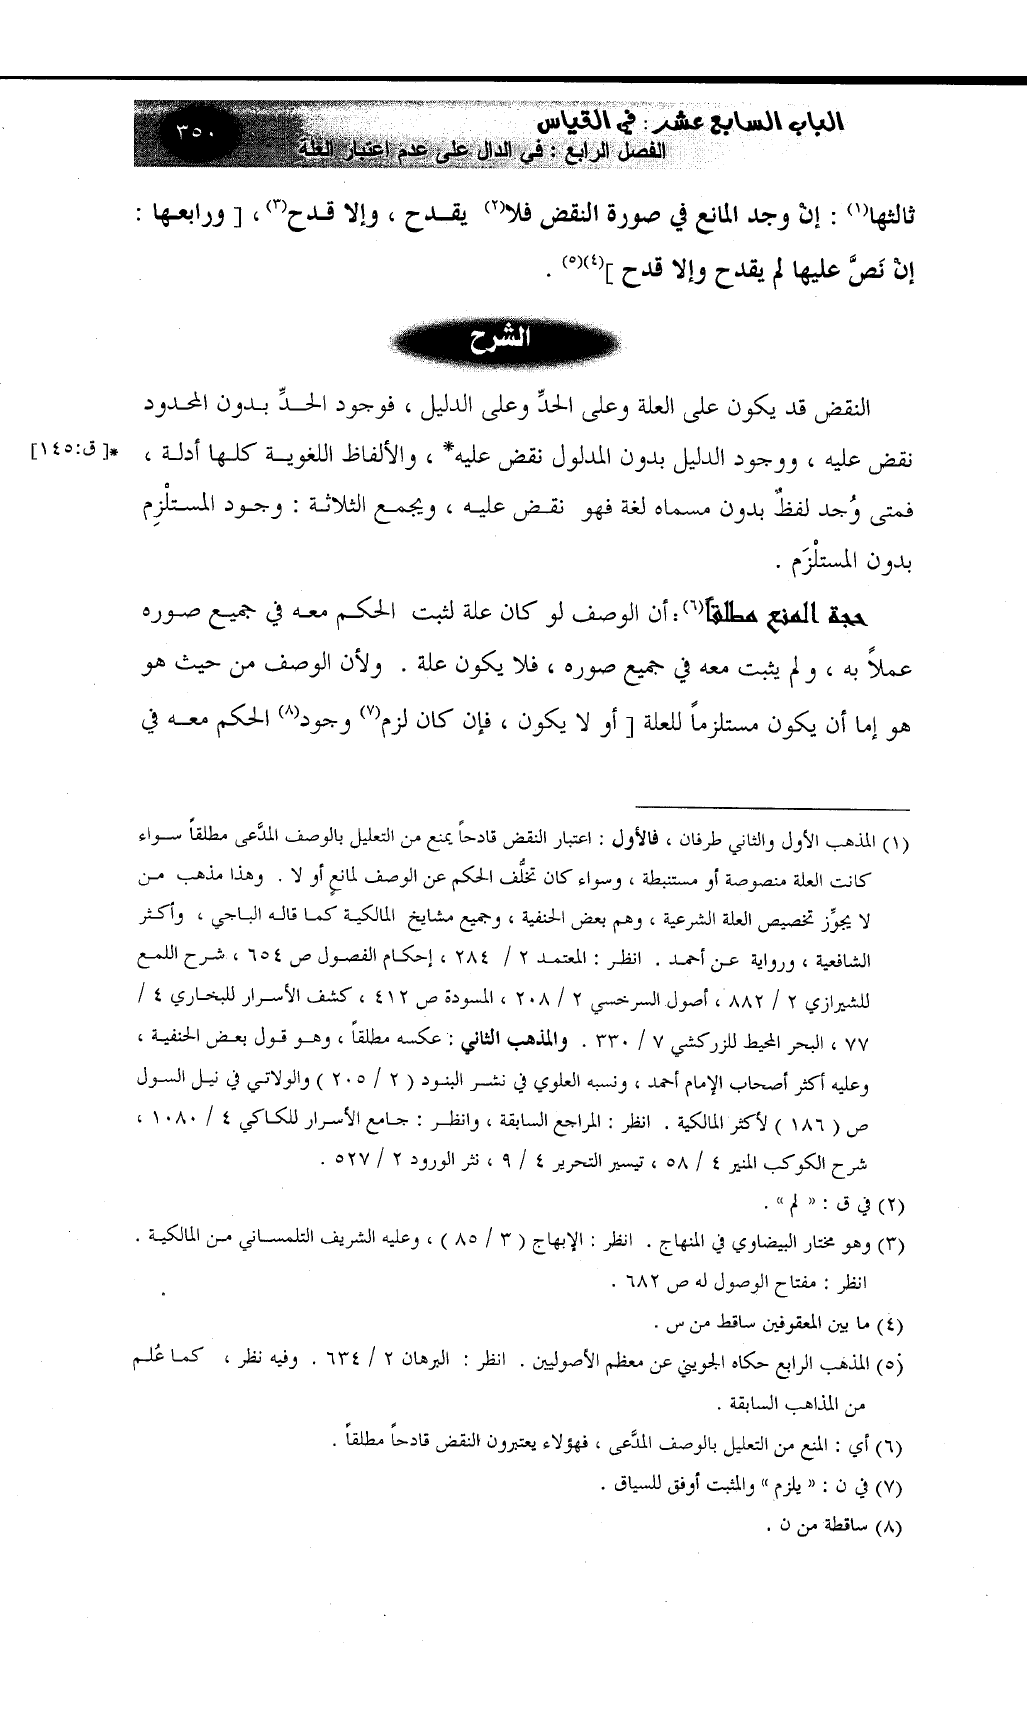 الباب السابع عشر : في القياس
٣٥٠
الفصل الرابع : في الدال على عدم اعتبار العلة
ثالثها(١) : إنْ وجد المانع في صورة النقض فلا(٢) يقـدح ، وإلا قـدح(٣) ، [ ورابعـها :
إنْ نَصَّ عليها لم يقدح وإلا قدح ](٤)(٥) .
الشرح
النقض قد يكون على العلة وعلى الحدِّ وعلى الدليل ، فوجود الحـدِّ بـدون المحـدود
نقض عليه ، ووجود الدليل بدون المدلول نقض عليه* ، والألفاظ اللغويـة كلـها أدلـة ،
*[ ق:١٤٥]
فمتى وُجد لفظٌ بدون مسماه لغة فهو نقـض عليـه ، ويجمـع الثلاثـة : وجـود المستلْزِم
بدون المستلْزَم .
حجة المنع مطلقاً(٦): أن الوصف لو كان علة لثبت الحكـم معـه في جميـع صـوره
عملاً به ، و لم يثبت معه في جميع صوره ، فلا يكون علة . ولأن الوصف من حيث هو
هو إما أن يكون مستلزماً للعلة [ أو لا يكون ، فإن كان لزم(٧) وجود(٨) الحكم معـه في
(١) المذهب الأول والثاني طرفان ، فالأول : اعتبار النقض قادحاً يمنع من التعليل بالوصف المدَّعى مطلقاً سـواء
كانت العلة منصوصة أو مستنبطة ، وسواء كان تخلُّف الحكم عن الوصف لمانعٍ أو لا . وهذا مذهب مـن
لا يجوِّز تخصيص العلة الشرعية ، وهم بعض الحنفية ، وجميع مشايخ المالكية كمـا قالـه البـاجي ، وأكـثر
الشافعية ، ورواية عـن أحمـد . انظـر : المعتمـد ٢ / ٢٨٤ ، إحكـام الفصـول ص ٦٥٤ ، شـرح اللمـع
للشيرازي ٢ / ٨٨٢ ، أصول السرخسي ٢ / ٢٠٨ ، المسودة ص ٤١٢ ، كشف الأسرار للبخاري ٤ /
٧٧ ، البحر المحيط للزركشي ٧ / ٣٣٠ . والمذهب الثاني : عكسه مطلقاً ، وهـو قـول بعـض الحنفيـة ،
وعليه أكثر أصحاب الإمام أحمد ، ونسبه العلوي في نشـر البنـود ( ٢ / ٢٠٥ ) والولاتـي في نيـل السـول
ص ( ١٨٦ ) لأكثر المالكية . انظر : المراجع السابقة ، وانظـر : جـامع الأسـرار للكـاكي ٤ / ١٠٨٠ ،
شرح الكوكب المنير ٤ / ٥٨ ، تيسير التحرير ٤ / ٩ ، نثر الورود ٢ / ٥٢٧ .
(٢) في ق : « لم » .
(٣) وهو مختار البيضاوي في المنهاج . انظر : الإبهاج ( ٣ / ٨٥ ) ، وعليه الشريف التلمسـاني مـن المالكيـة .
انظر : مفتاح الوصول له ص ٦٨٢ .
(٤) ما بين المعقوفين ساقط من س .
(٥) المذهب الرابع حكاه الجويني عن معظم الأصوليين . انظر : البرهان ٢ / ٦٣٤ . وفيه نظر ، كمـا عُلـم
من المذاهب السابقة .
(٦) أي : المنع من التعليل بالوصف المدَّعى ، فهؤلاء يعتبرون النقض قادحاً مطلقاً .
(٧) في ن : « يلزم » والمثبت أوفق للسياق .
(٨) ساقطة من ن .